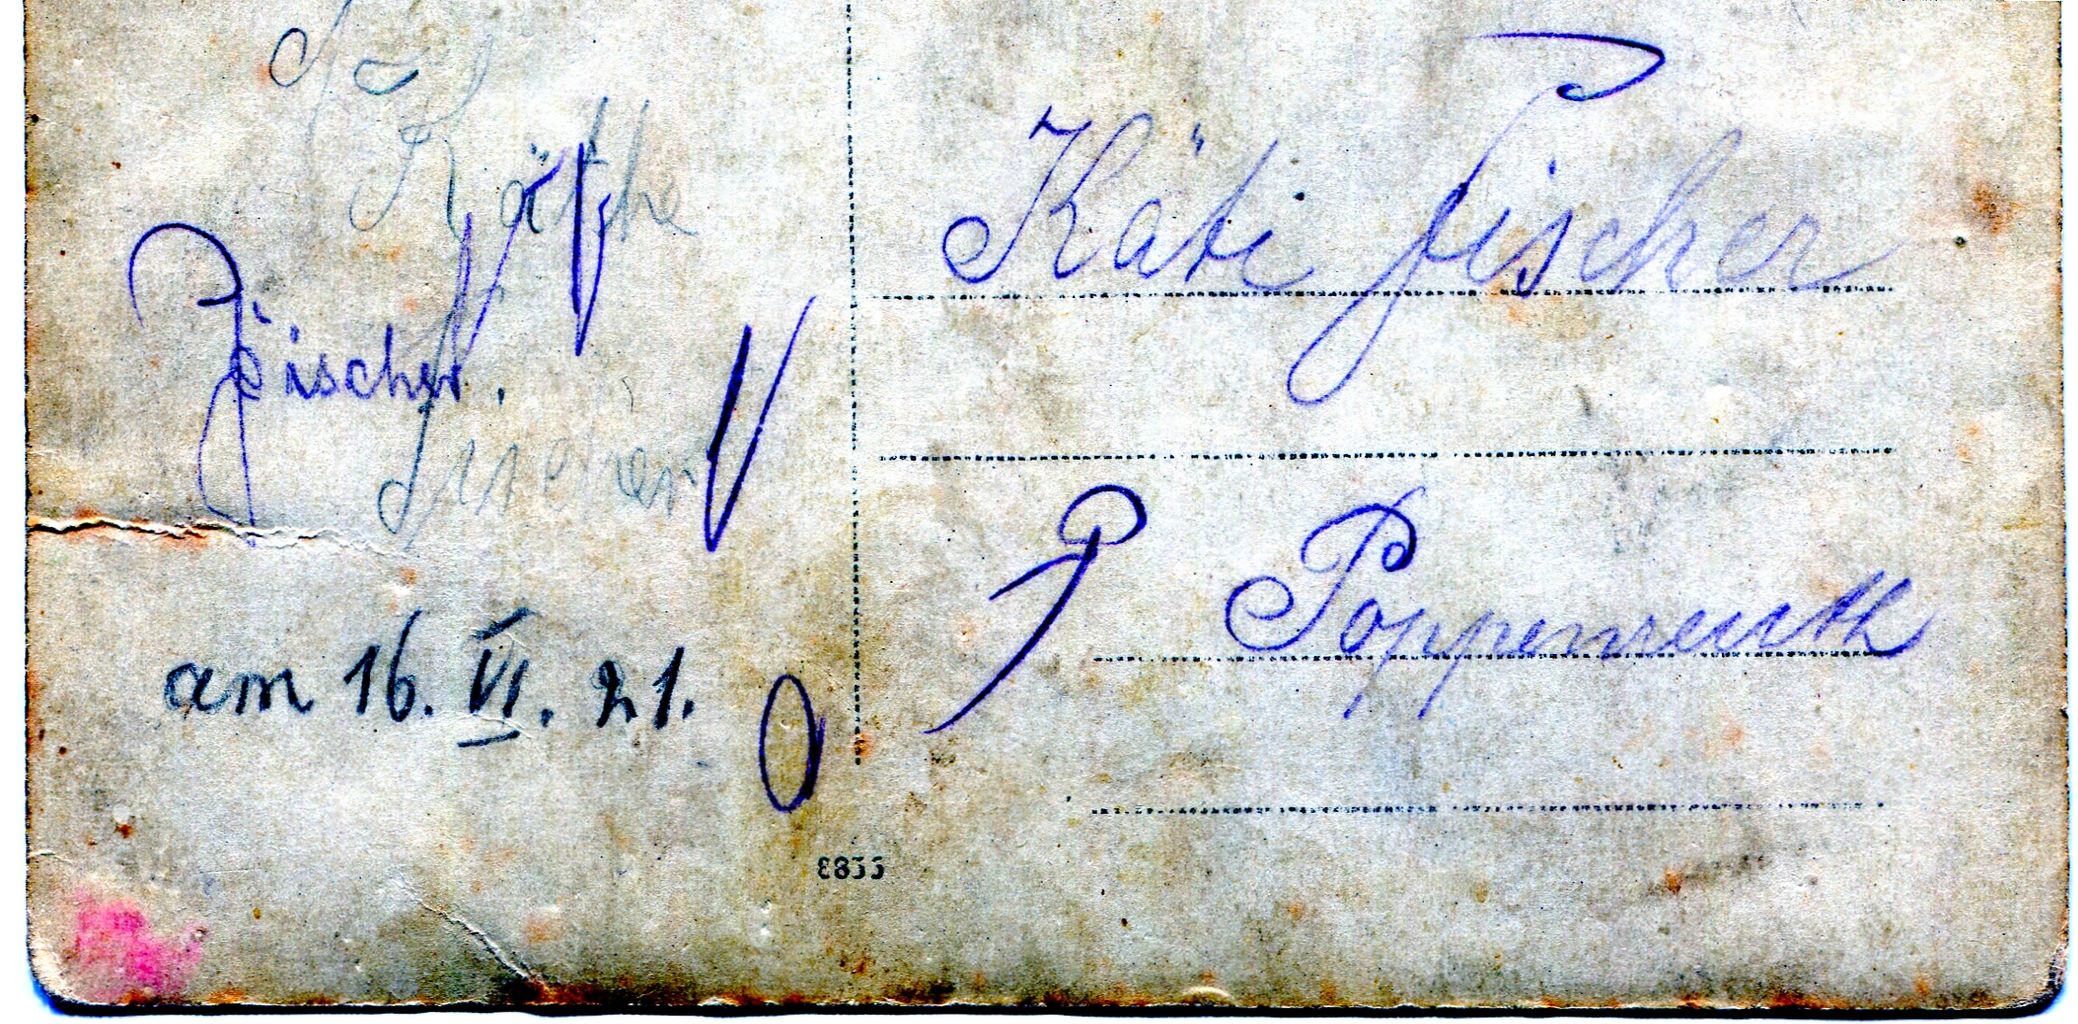 Käthe
Fischer.
Fischer
am 16. VI. 21.
Käti Fischer
P Poppenreuth